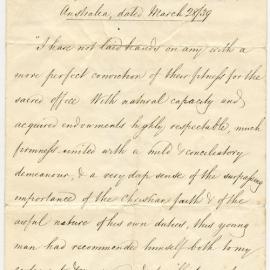 Australia, dated March 28/39
"I have not laid hands on any with a
more perfect conviction of their fitness for the
sacred office With natural capacity and
acquired endowments highly respectable, much
firmness united with a mild & conciliatory
demeanour, & a very deep sense of the surpassing
importance of the Christian faith & of the
awful nature of his own duties, this young
man had recommended himself both to my